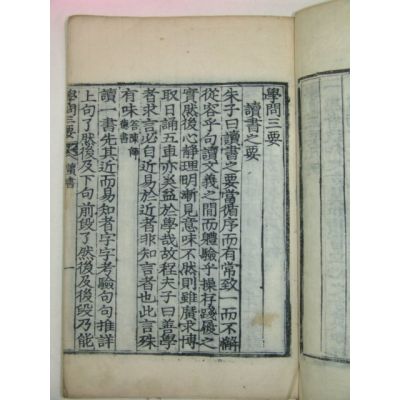 學問三要
讀書之要
朱子曰讀書之要當循序而有常致一而不懈
從容乎句讀文義之間而體驗乎操存踐履之
實然後心靜理明漸見意味不然則雖廣求博
取日誦五車亦奚益於學哉故程夫子曰善學
者求言必自近易於近者非知言者也此言殊
有味答陳師德書
讀一書先其近而易知者字字考驗句句推詳
上句了然後及下句前段了然後及後段乃能
學問三要 讀書 一